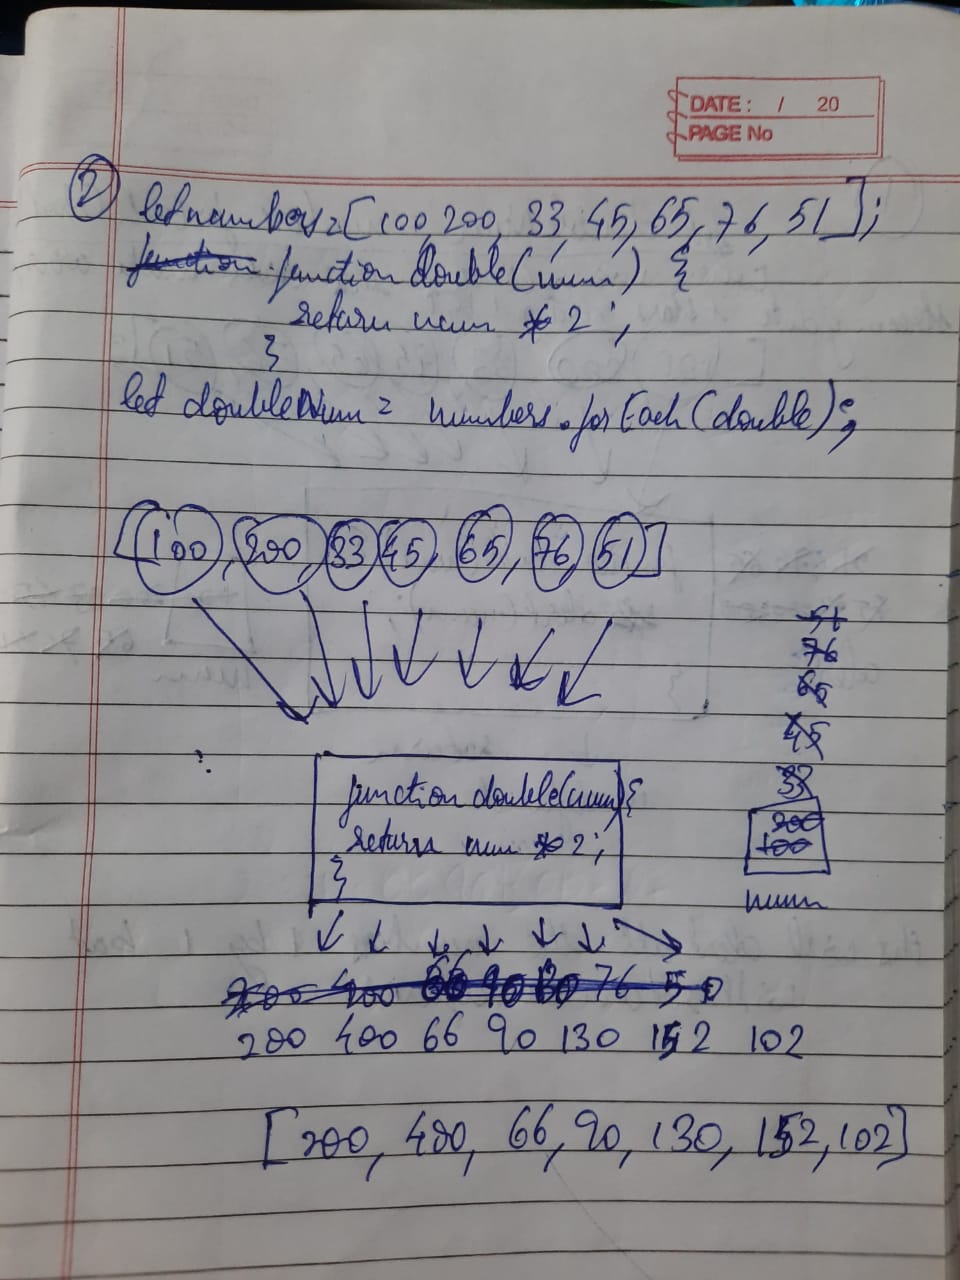 DATE: / 20
PAGE No
2
let numbers = [100, 200, 33, 45, 65, 76, 51];
function function double(num) {
return num * 2;
}
let doubleNum = numbers.forEach(double);
[100, 200, 33, 45, 65, 76, 51]
51
76
65
45
33
200
100
num
function double(num){
return num * 2;
}
200 400 66 90 130 152 102
[200, 400, 66, 90, 130, 152, 102]